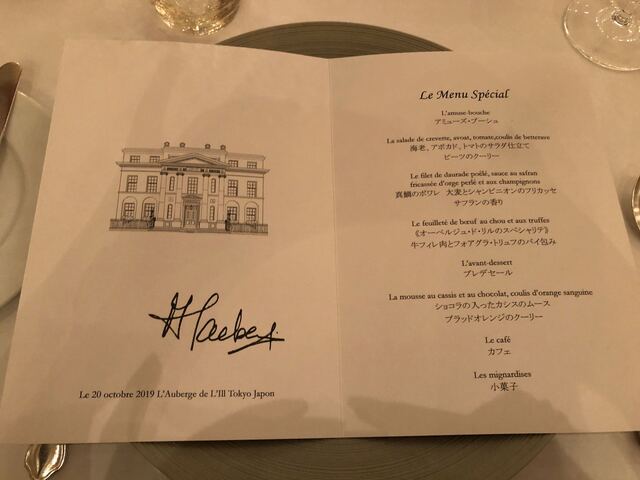 Le 20 octobre 2019 L'Auberge de L'Ill Tokyo Japon
Le Menu Spécial
L'amuse-bouche
アミューズ・ブーシュ
La salade de crevette, avoat, tomate,coulis de betterave
海老、アボカド、トマトのサラダ仕立て
ビーツのクーリー
Le filet de daurade poêlé, sauce au safran
fricassée d'orge perlé et aux champignons
真鯛のポワレ 大麦とシャンピニオンのフリカッセ
サフランの香り
Le feuilleté de bœuf au chou et aux truffes
《オーベルジュ・ド・リルのスペシャリテ》
牛フィレ肉とフォアグラ・トリュフのパイ包み
L'avant-dessert
プレデセール
La mousse au cassis et au chocolat, coulis d'orange sanguine
ショコラの入ったカシスのムース
ブラッドオレンジのクーリー
Le café
カフェ
Les mignardises
小菓子